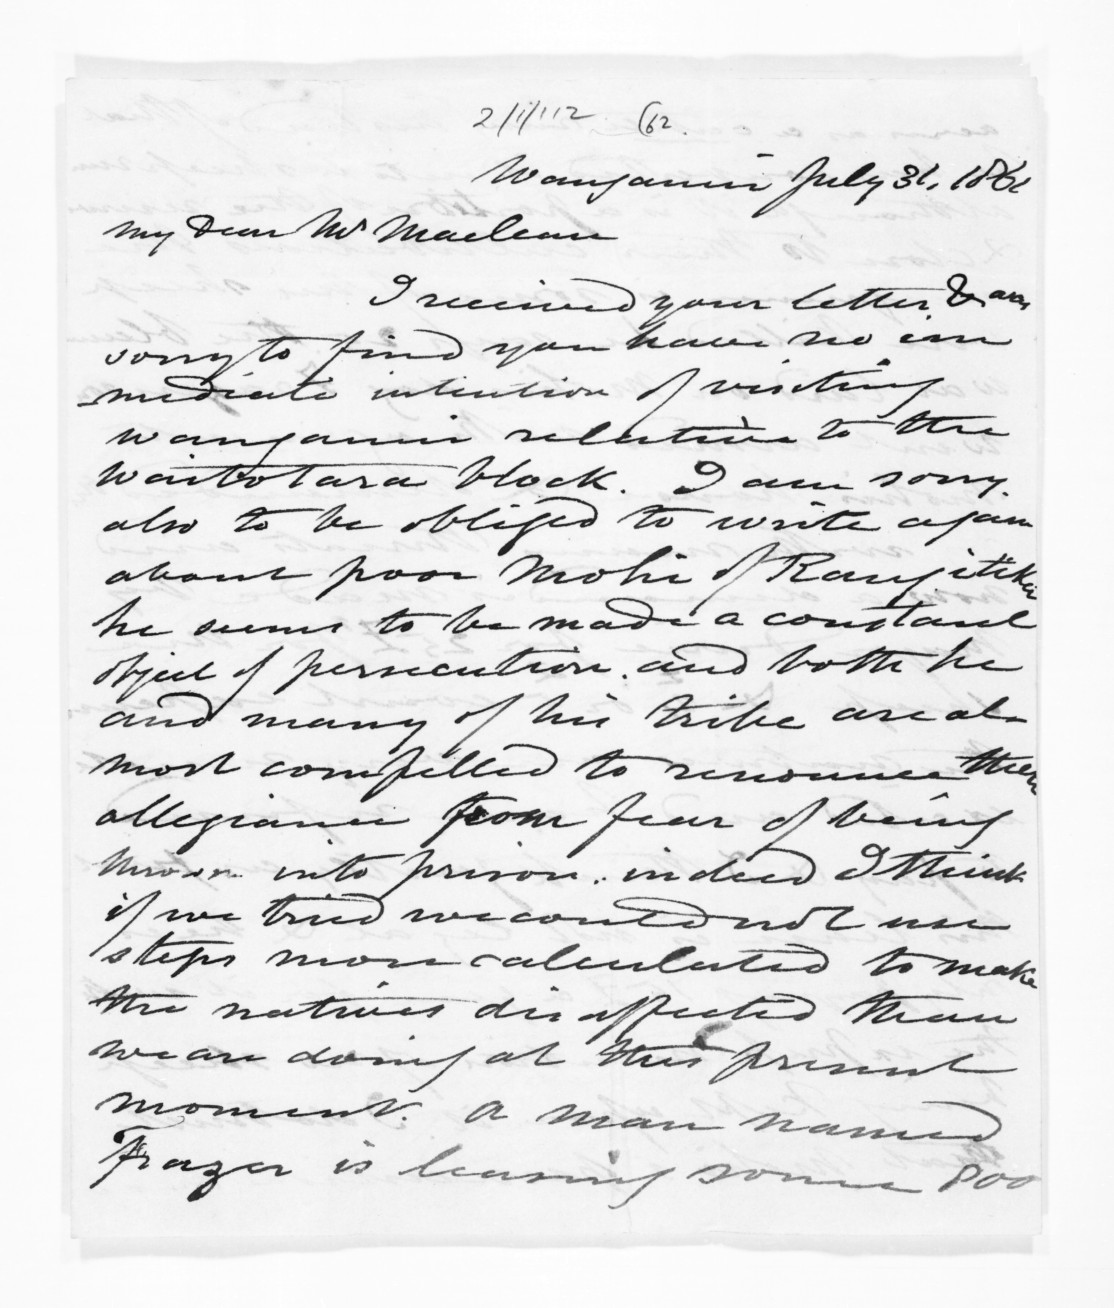 2/1/112 (62.
Wanganui July 31. 1861
My Dear Mr Maclean
I received your letter & am
sorry to find you have no im
-mediate intention of visiting
Wanganui relative to the
Waitotara block. I am sorry
also to be obliged to write again
about poor Mohi of Rangitikei
he seems to be made a constant
object of persecution. and both he
and many of his tribe are al-
most compelled to renounce their
allegiance from fear of being
thrown into prison. indeed I think
if we tried we could not use
steps more calculated to make
the natives disaffected than
we are doing at this present
moment. A man named
Frazer is leasing some 800